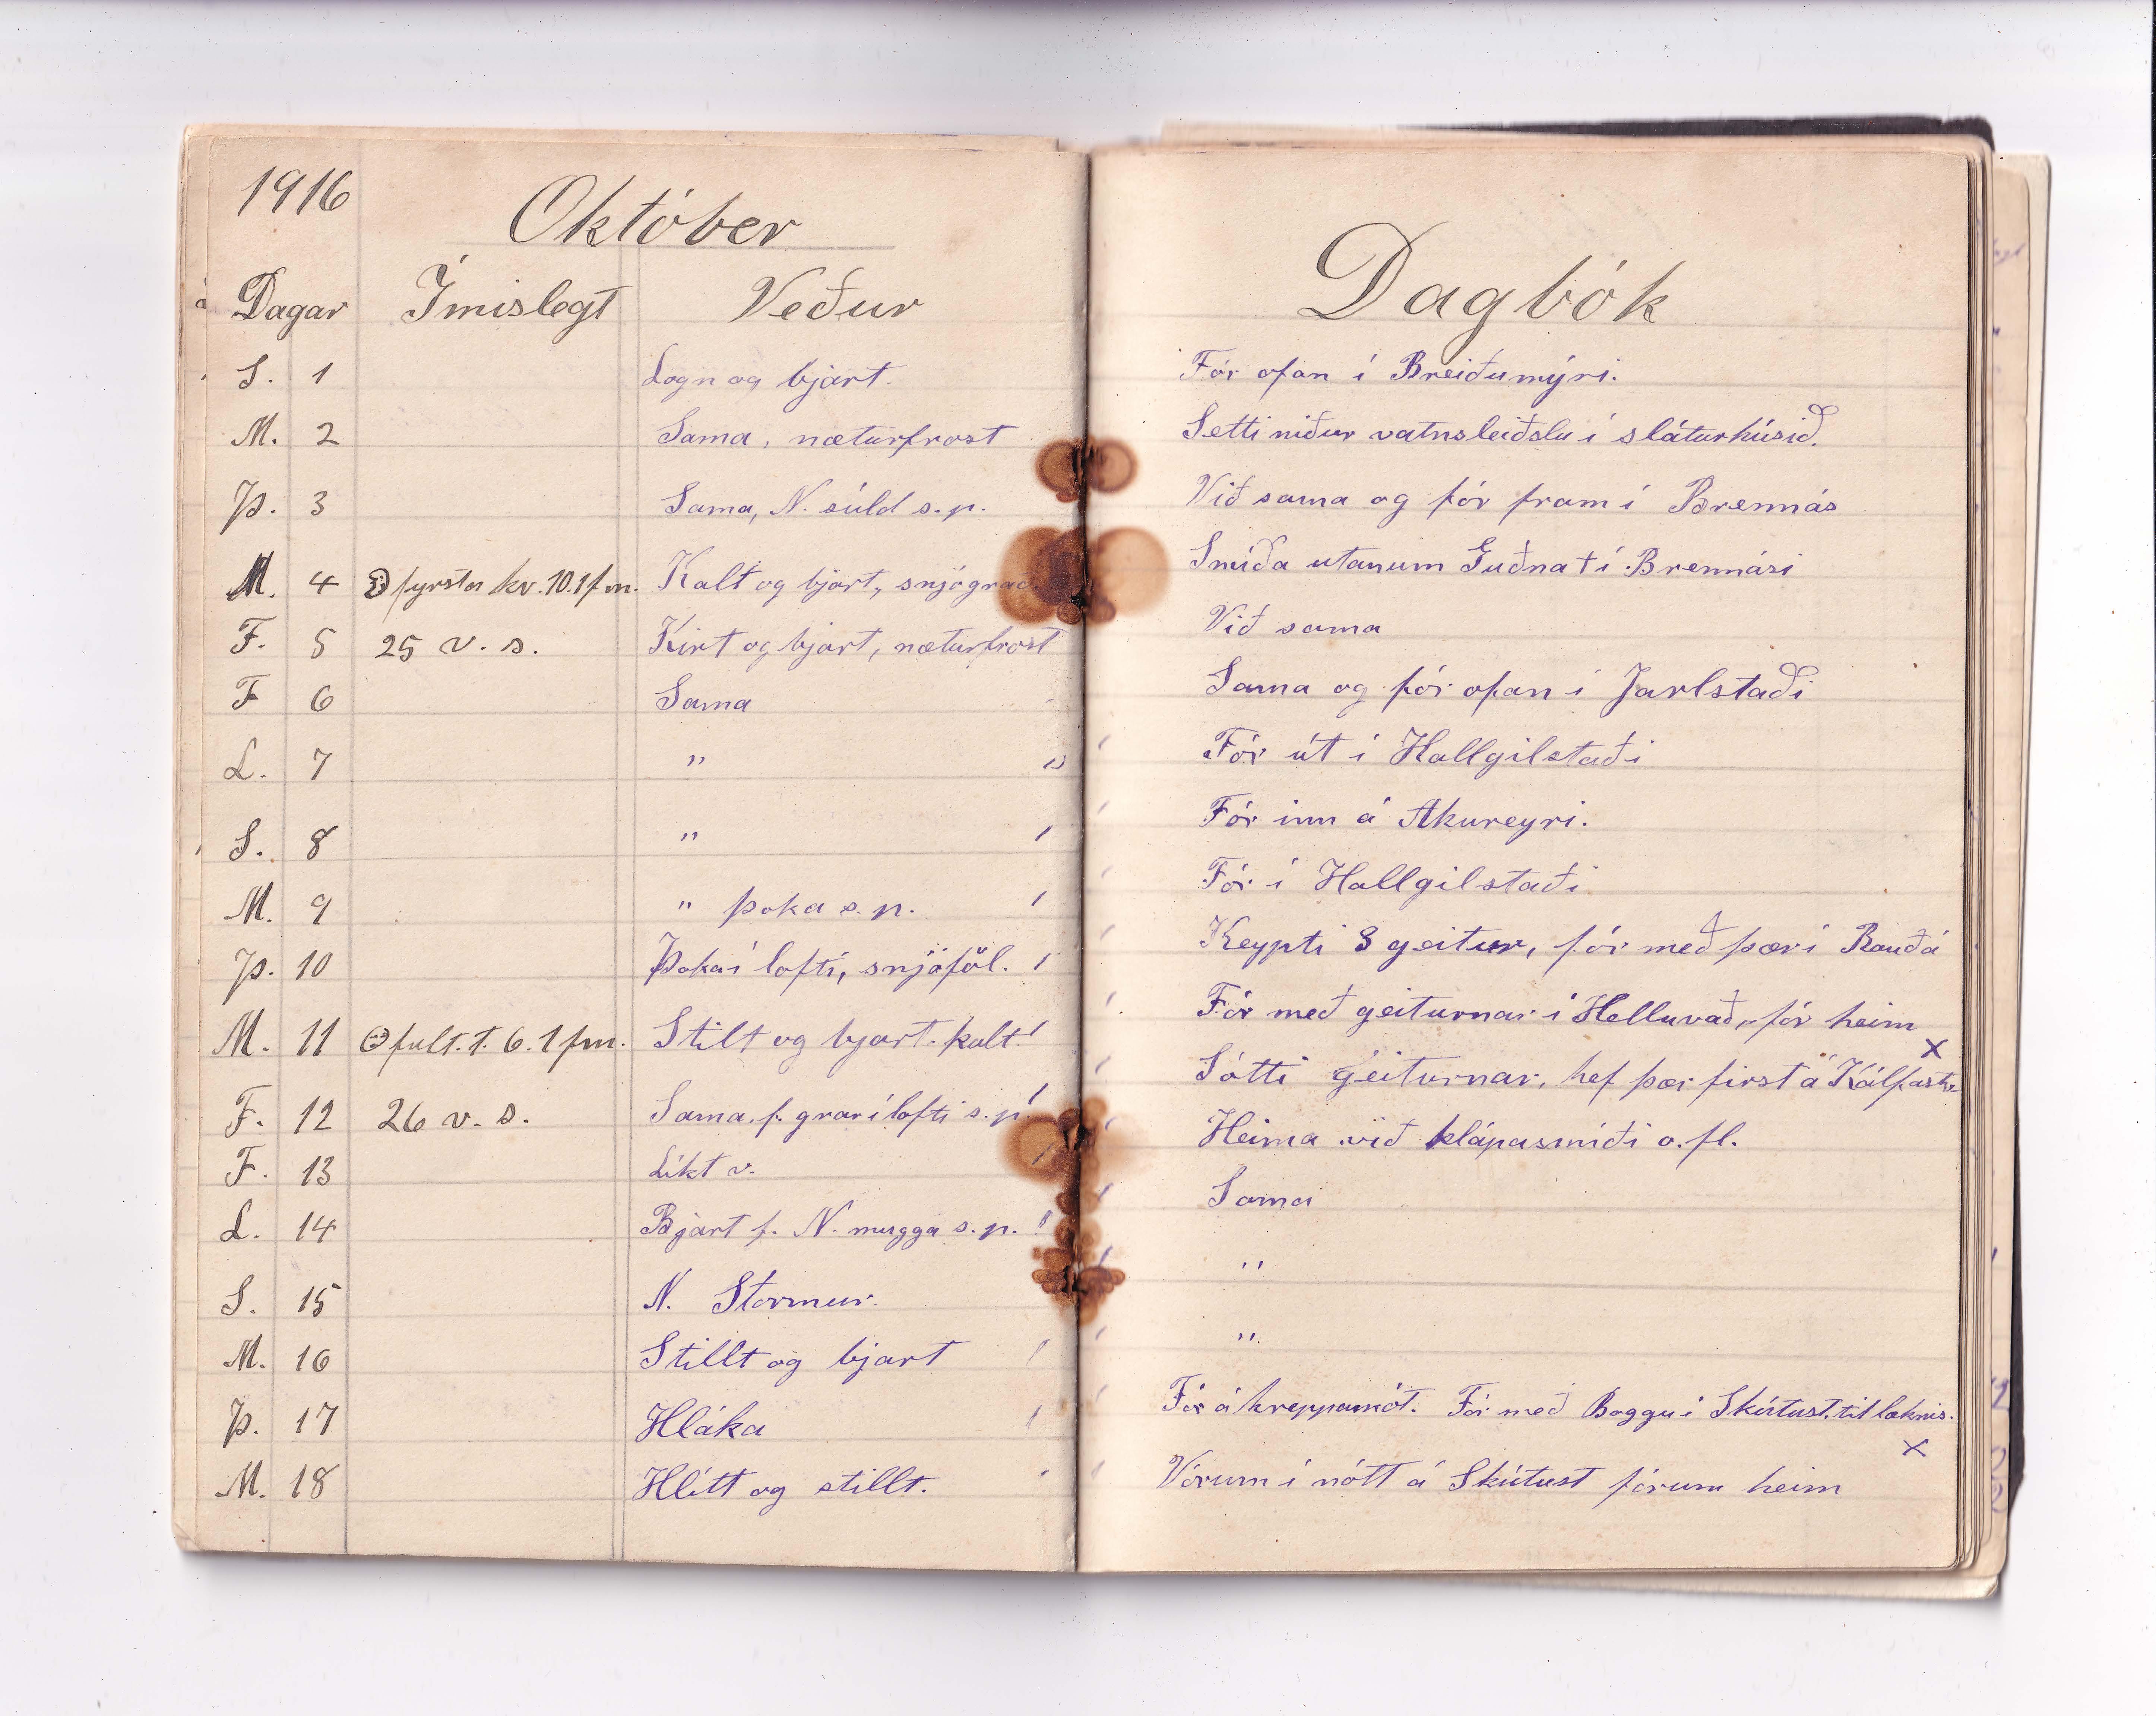 1916
Október
Dagar Ímislegt Veður
S. 1 Logn og bjart.
M. 2 Sama, næturfrost
Þ. 3 Sama, N. súld s.p.
M. 4 fyrsta kv. 10.1 fm. Kalt og bjart,
F. 5 25 v. s. Kirt og bjart, næturfrost
F 6 Sama
L. 7 " "
S. 8 "
M. 9 " þoka s.p.
Þ. 10 Þoka í lofti, snjóföl.
M. 11 fult. t. 6.1 fm. Stilt og bjart. kalt
F. 12 26 v. s. Sama. f. grar í lofti s.p.
F. 13 Líkt v.
L. 14 Bjart f. N. mugga s.p.
S. 15 N. Stormur.
M. 16 Stillt og bjart
Þ. 17 Hláka
M. 18 Hlítt og stillt.
Dagbók
Fór ofan í Breiðumýri.
Setti niður vatnsleiðslu í sláturhúsið.
Við sama og fór fram í Brennás
Smíða utanum Guðna † í Brennási
Við sama
Sama og fór ofan í Jarlstaði
Fór út í Hallgilstaði
Fór inn á Akureyri.
Fór í Hallgilstaði
Keypti 8 geitur, fór með þær í Rauðá
Fór með geiturnar í Helluvað, fór heim
x
Sótti geiturnar, hef þær first á Kálfastr.
Heima við klápasmíði o.fl.
Sama
"
"
Fór á hreppamót. Fór með Boggu í Skútust. til læknis.
x
Vórum í nótt á Skútust fórum heim